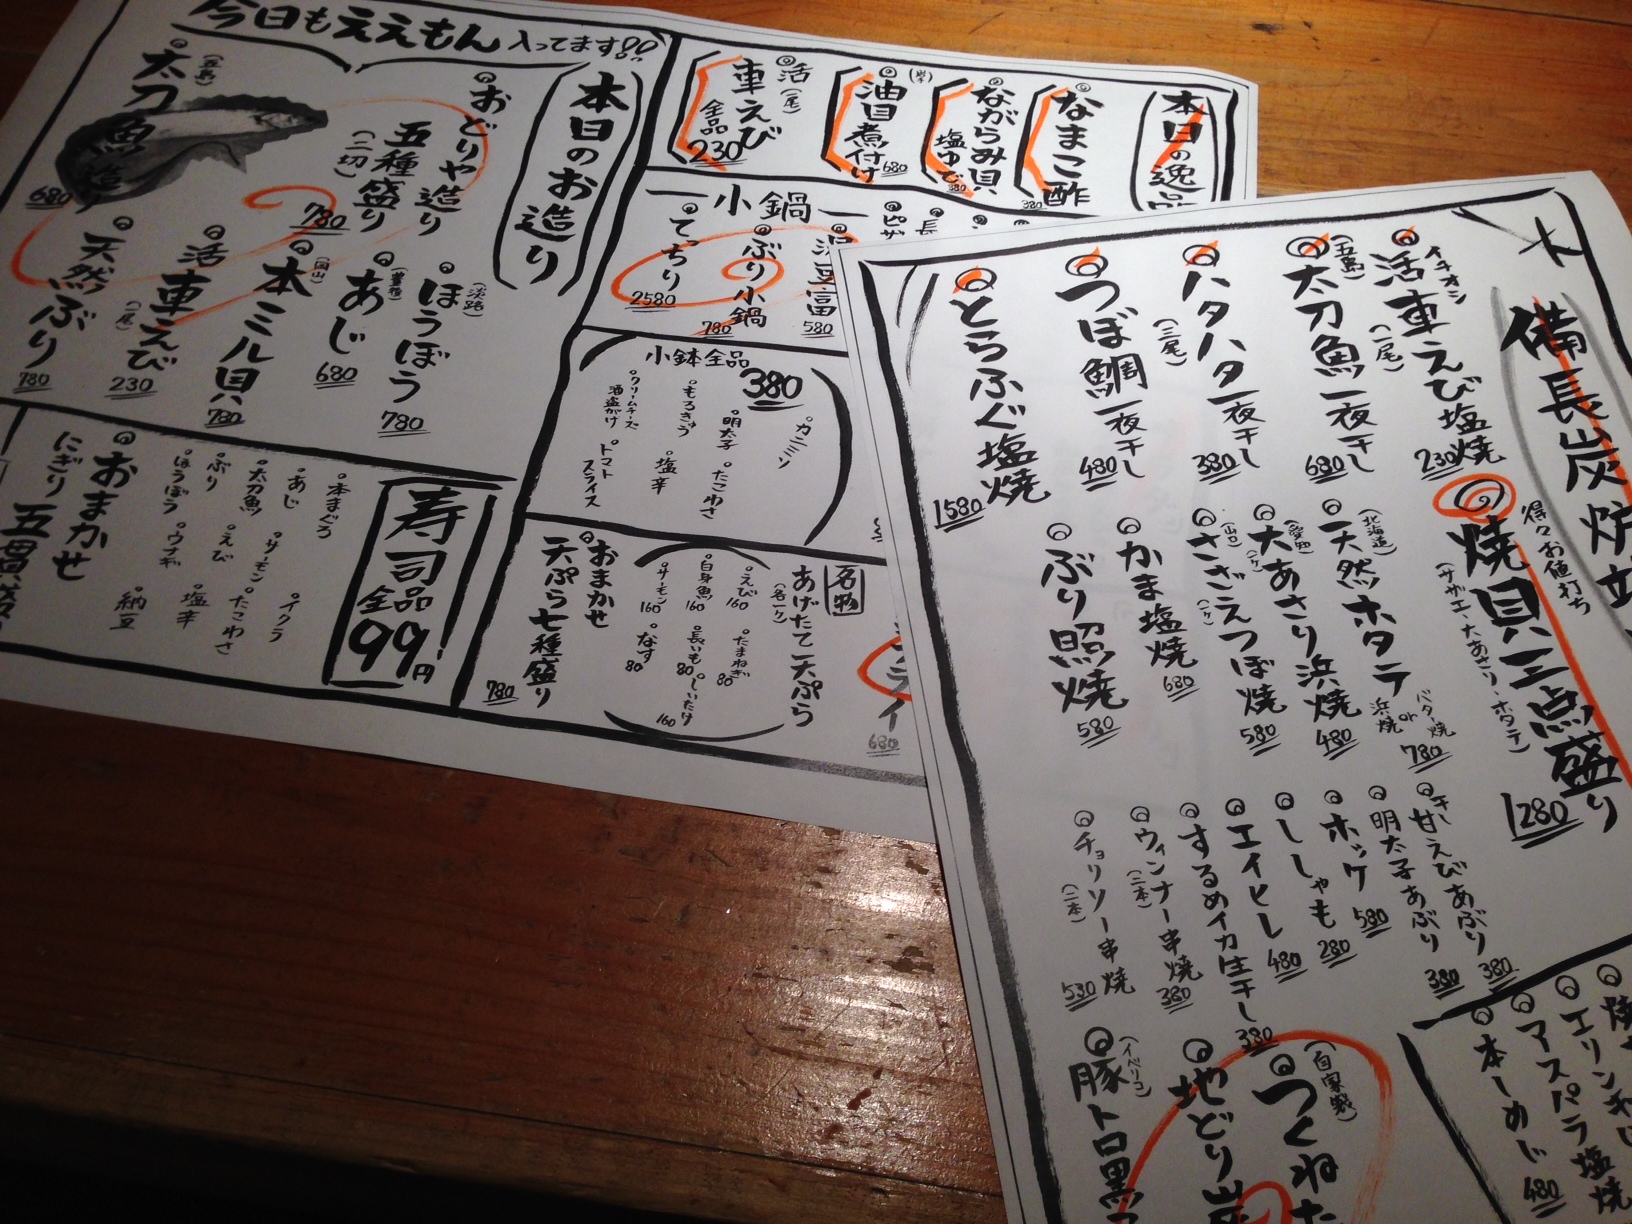 今日もええもん 入ってます!!
本日のお造り
おどりや造り
五種盛り
(二切)
780
太刀魚造り
(五島)
680
ほうぼう
(淡路)
780
あじ
680
本ミル貝
(岡山)
780
活車えび
(一尾)
230
天然ぶり
780
寿司全品99円
本まぐろ
あじ
サーモン
イクラ
太刀魚
えび
たこわさ
ぶり
ウナギ
塩辛
ほうぼう
納豆
おまかせ
にぎり五貫
本日の逸品
なまこ酢
380
ながらみ貝
塩ゆで
380
油目煮付け
680
活車えび
(一尾)
全品
230
小鍋
湯豆富
580
ぶり小鍋
780
てっちり
2580
ピザ
小鉢全品
380
カニミソ
明太子
たこわさ
もろきゅう
塩辛
クリームチーズ
酒盗がけ
トマト
スライス
名物
あげたて天ぷら
(各一ケ)
えび
160
たまねぎ
80
白身魚
160
長いも
80
しいたけ
160
サーモン
160
なす
80
おまかせ
天ぷら七種盛り
780
680
備長炭炉
得々お値打ち
焼貝三点盛り
(サザエ・大あさり・ホタテ)
1280
イチオシ
活車えび塩焼
(一尾)
230
太刀魚一夜干し
(五島)
680
ハタハタ一夜干し
(三尾)
380
つぼ鯛一夜干し
480
とらふぐ塩焼
1580
天然ホタテ
(北海道)
浜焼 or バター焼
780
大あさり浜焼
(愛知)
(一ケ)
480
さざえつぼ焼
(山口)
(一ケ)
580
かま塩焼
680
ぶり照焼
580
干し甘えびあぶり
380
明太子あぶり
380
ホッケ
580
ししゃも
280
エイヒレ
480
するめイカ生干し
380
ウィンナー串焼
(二本)
380
チョリソー串焼
(二本)
530
つくねた
(自家製)
地どり炭
豚トロ黒
(イベリコ)
エリンギ
アスパラ塩焼
本しめじ
480